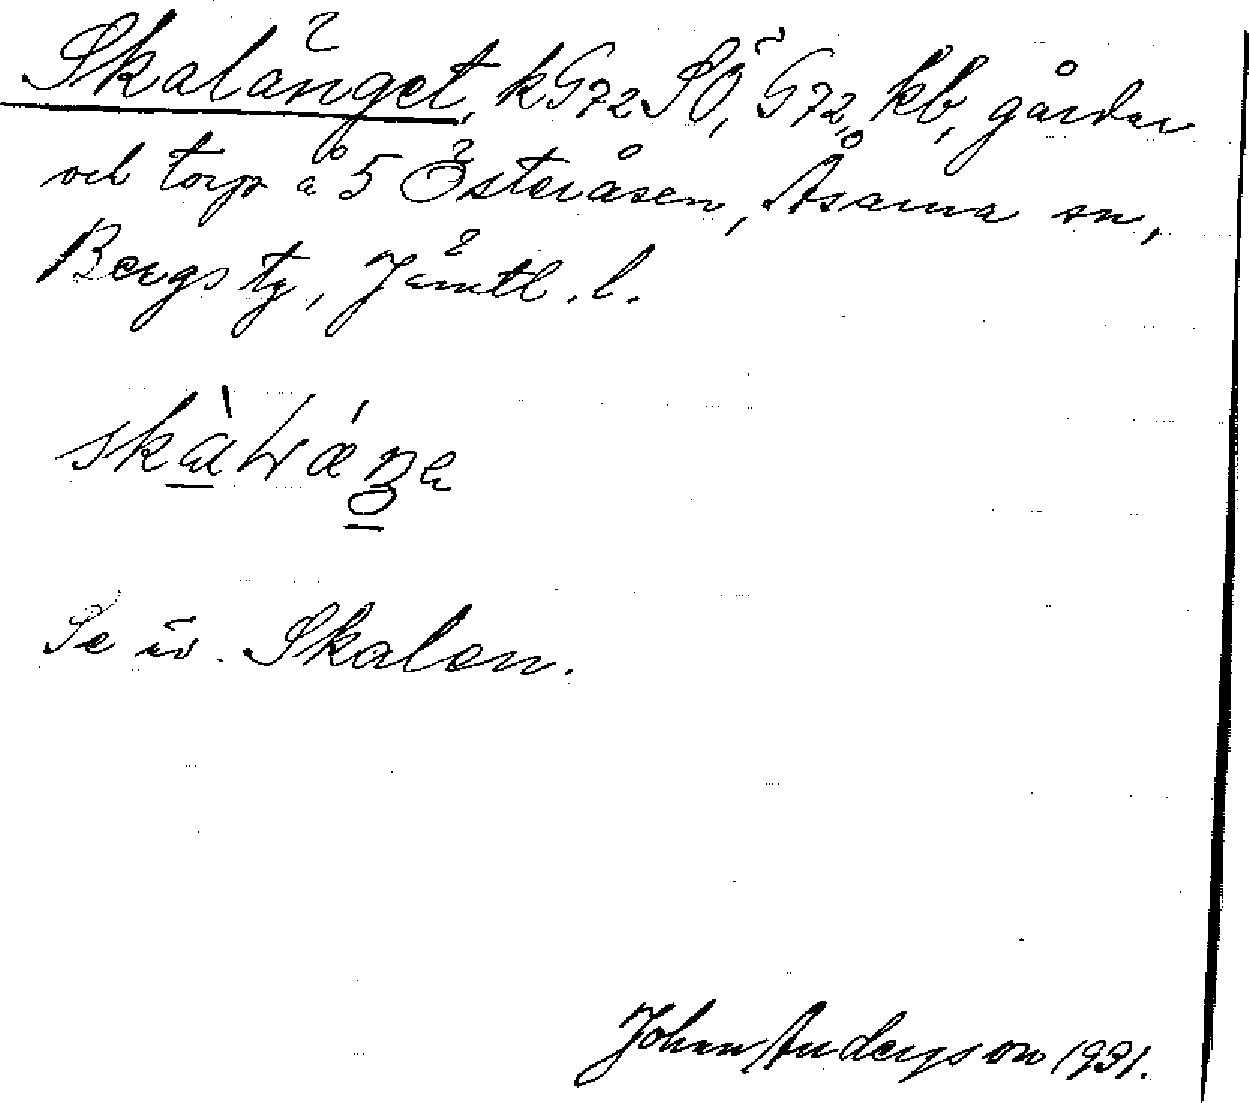 Skalänget, kG72SÖ, G72, kb, gårdar
och torp å 5 Österåsen, Åsarna sn,
Bergs tg, Jämtl. l.
Se ur. Skalen.
Johan Anderson 1931.